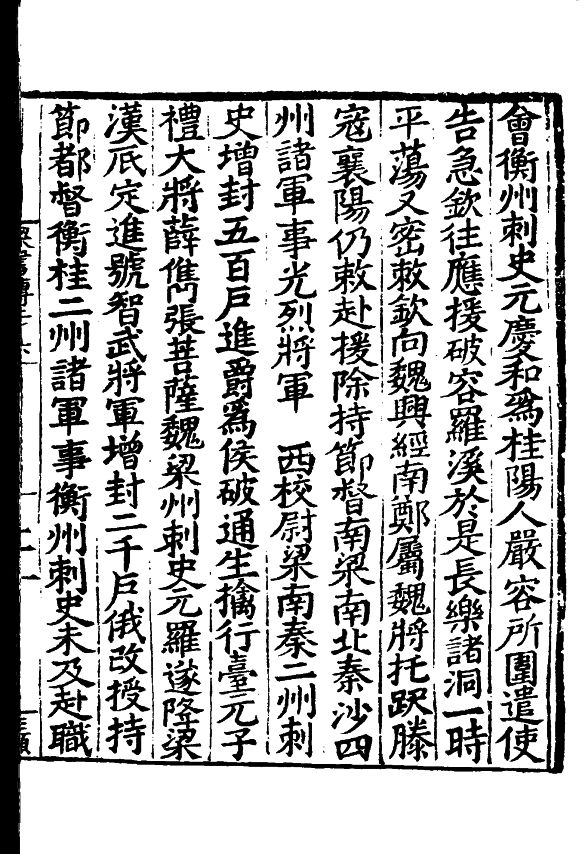 會衡州刺史元慶和爲桂陽人嚴容所圍遣使
告急欽往應援破容羅溪於是長樂諸洞一時
平蕩又密敕欽向魏興經南鄭屬魏將托跋勝
寇襄陽仍敕赴援除持節督南梁南北秦沙四
州諸軍事光烈將軍 西校尉梁南秦二州刺
史增封五百戶進爵爲侯破通生擒行臺元子
禮大將薛儁張菩薩魏梁州刺史元羅遂降梁
漢底定進號智武將軍增封二千戶俄改授持
節都督衡桂二州諸軍事衡州刺史未及赴職